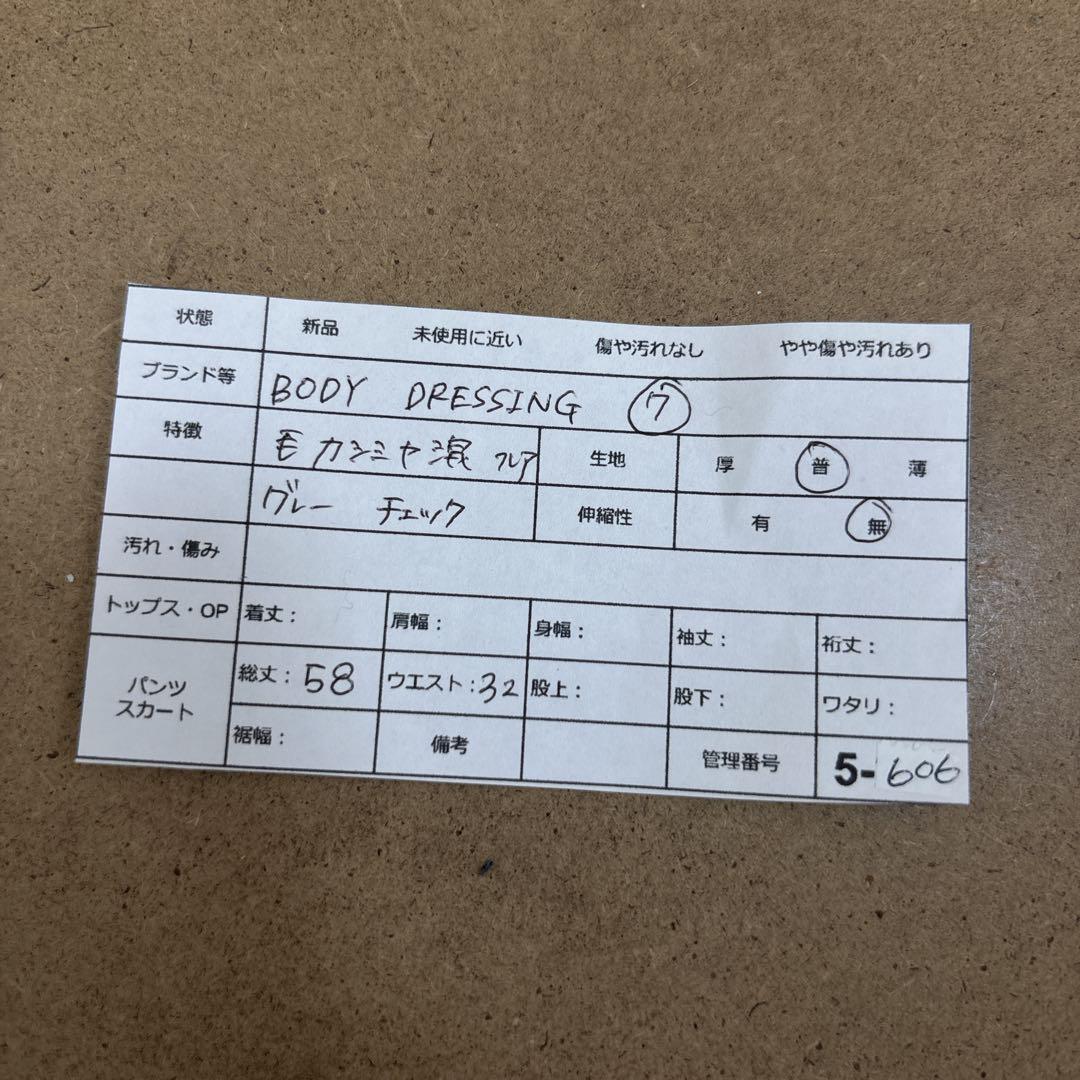 状態 新品 未使用に近い 傷や汚れなし やや傷や汚れあり
ブランド等 BODY DRESSING ⑦
特徴 毛カシミヤ混 フレア 生地 厚 普 薄
グレー チェック 伸縮性 有 無
汚れ・傷み
トップス・OP 着丈: 肩幅: 身幅: 袖丈: 裄丈:
パンツ スカート 総丈: 58 ウエスト: 32 股上: 股下: ワタリ:
裾幅: 備考 管理番号 5-606